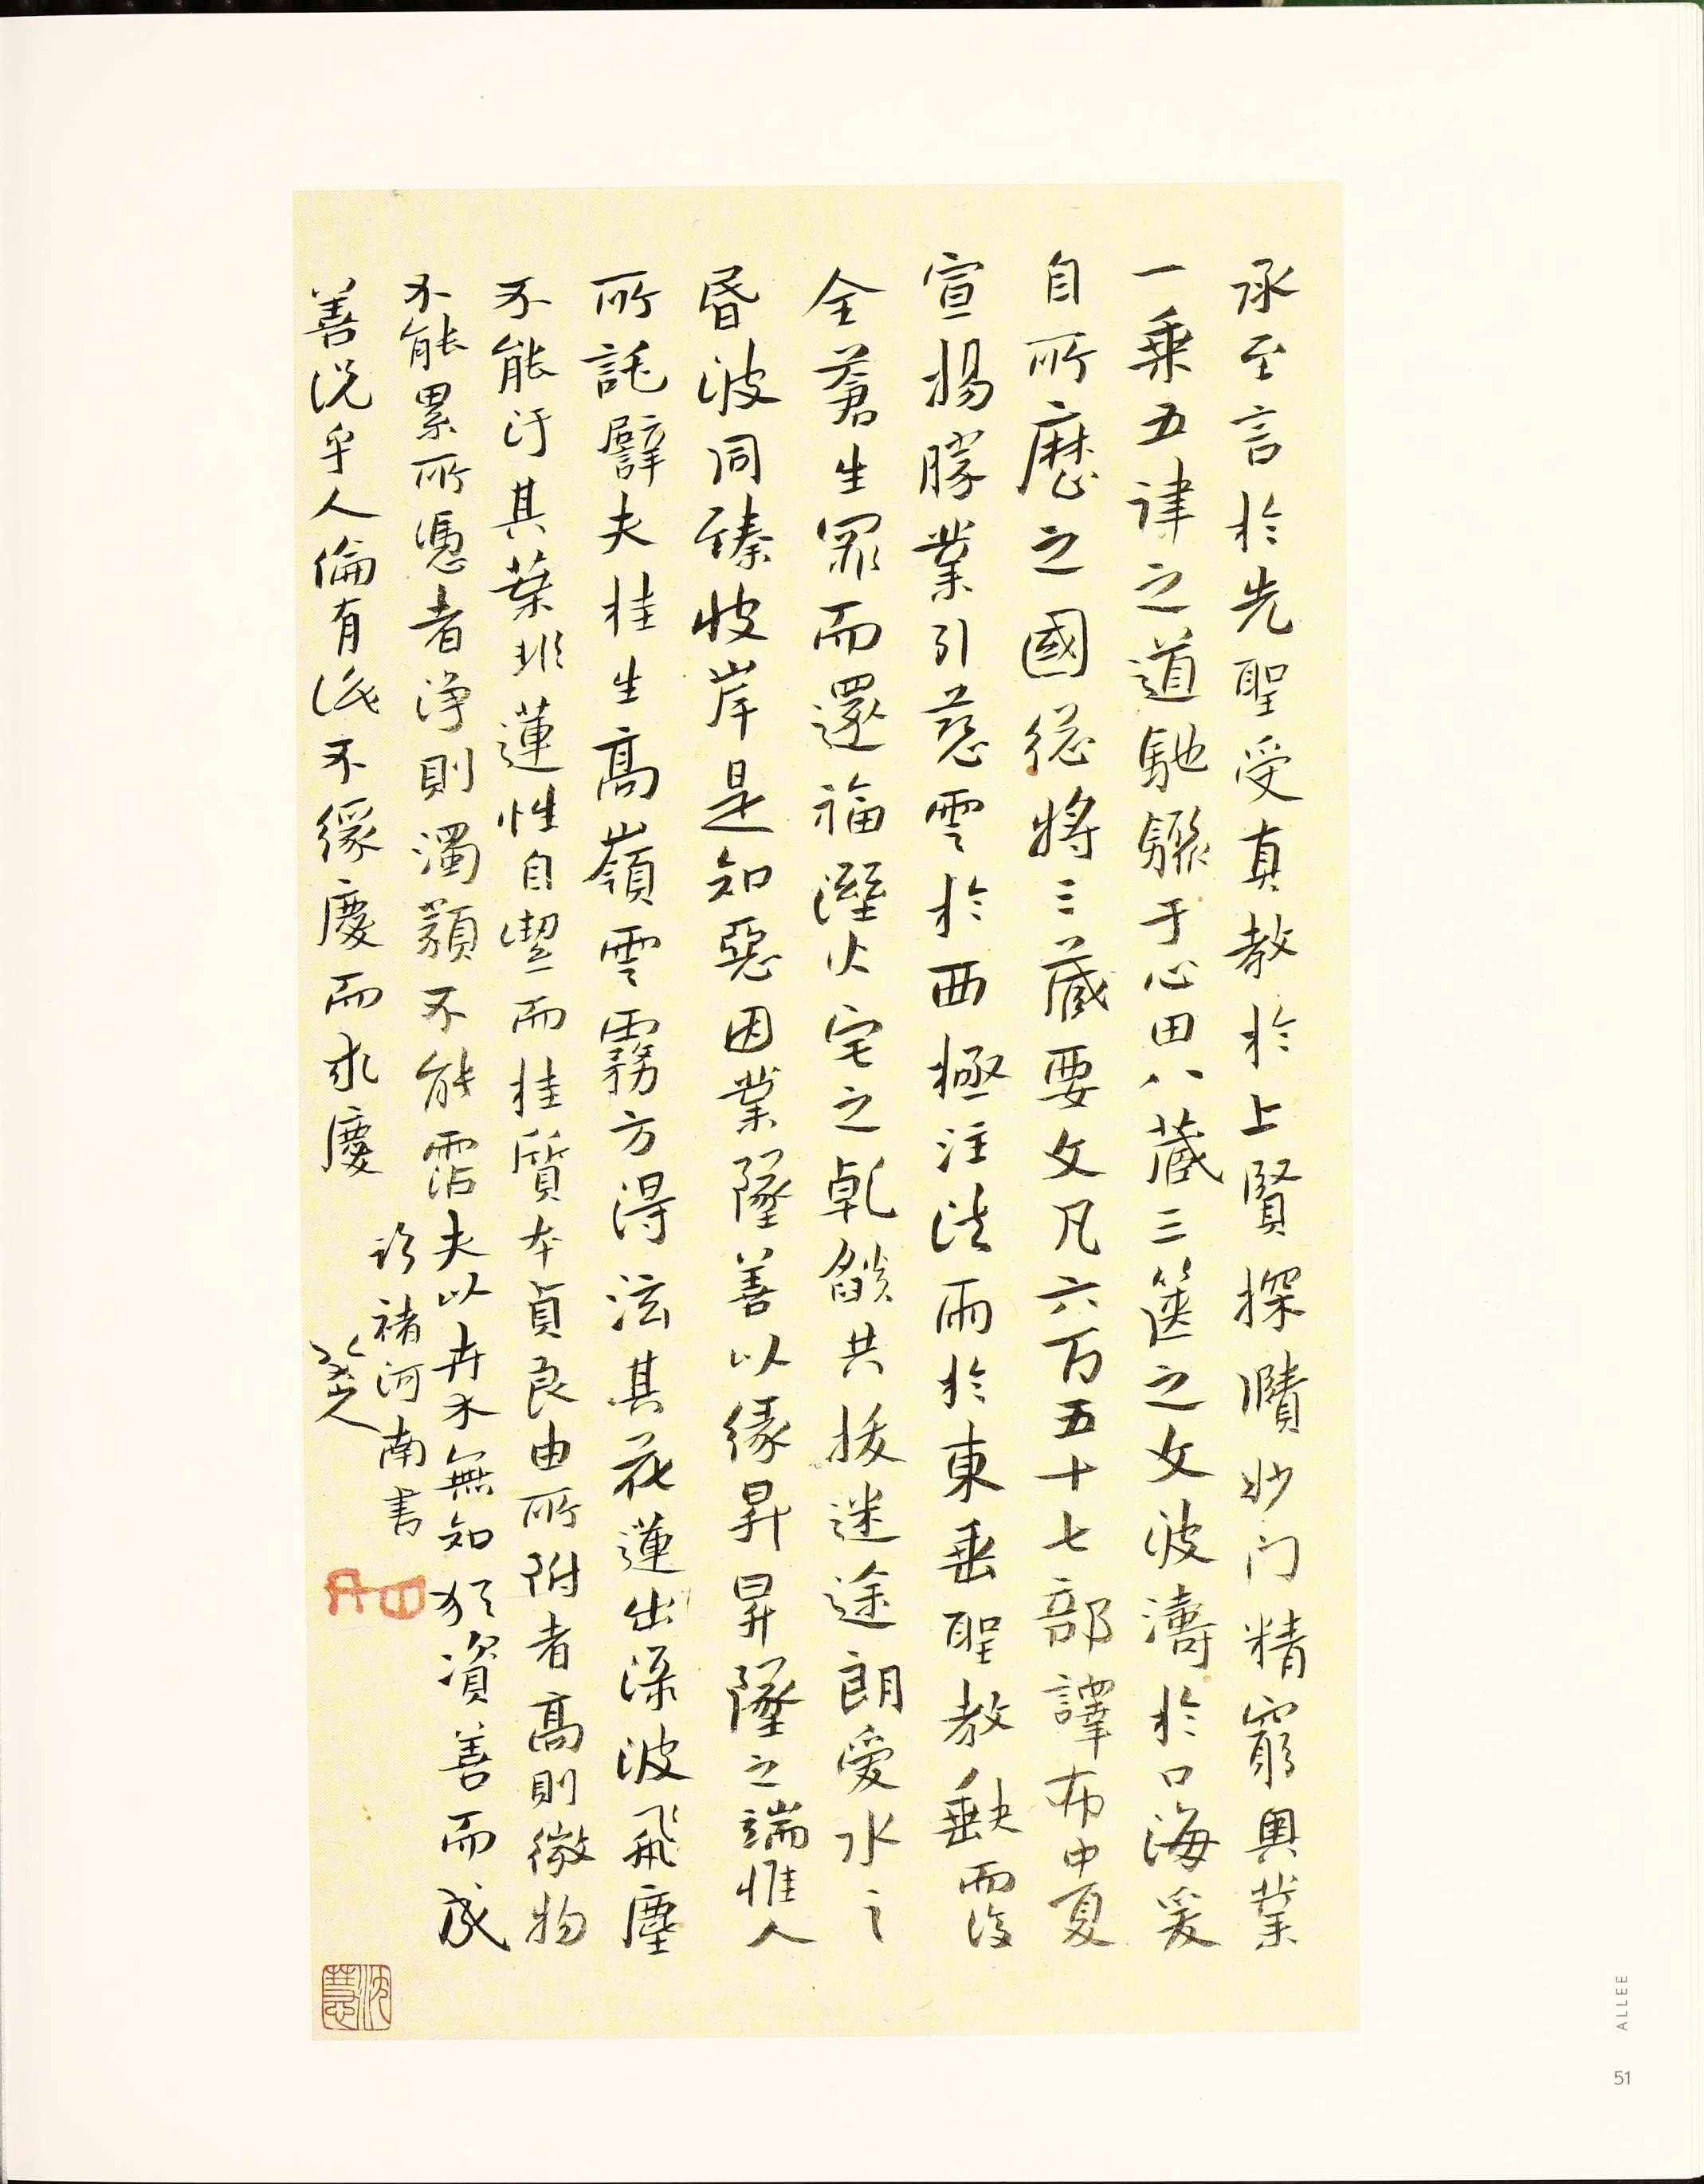 承至言於先聖受真教於上賢探賾妙门精窮奧業
一乘五律之道馳驟于心田八藏三篋之文波濤於口海爰
自所歷之國總將三藏要文凡六百五十七部譯布中夏
宣揚勝業引慈雲於西極注法雨於東垂聖教缺而復
全蒼生罪而還福濕火宅之乾燄共拔迷途朗愛水之
昏波同臻彼岸是知惡因業墜善以緣昇昇墜之端惟人
所託譬夫桂生高嶺雲霧方得泫其花蓮出淥波飛塵
不能汙其葉非蓮性自潔而桂質本貞良由所附者高則微物
不能累所憑者淨則濁類不能霑夫以卉木無知猶資善而成
善況乎人倫有識不緣慶而求慶
臨褚河南书
八大山人
ALLEE
51